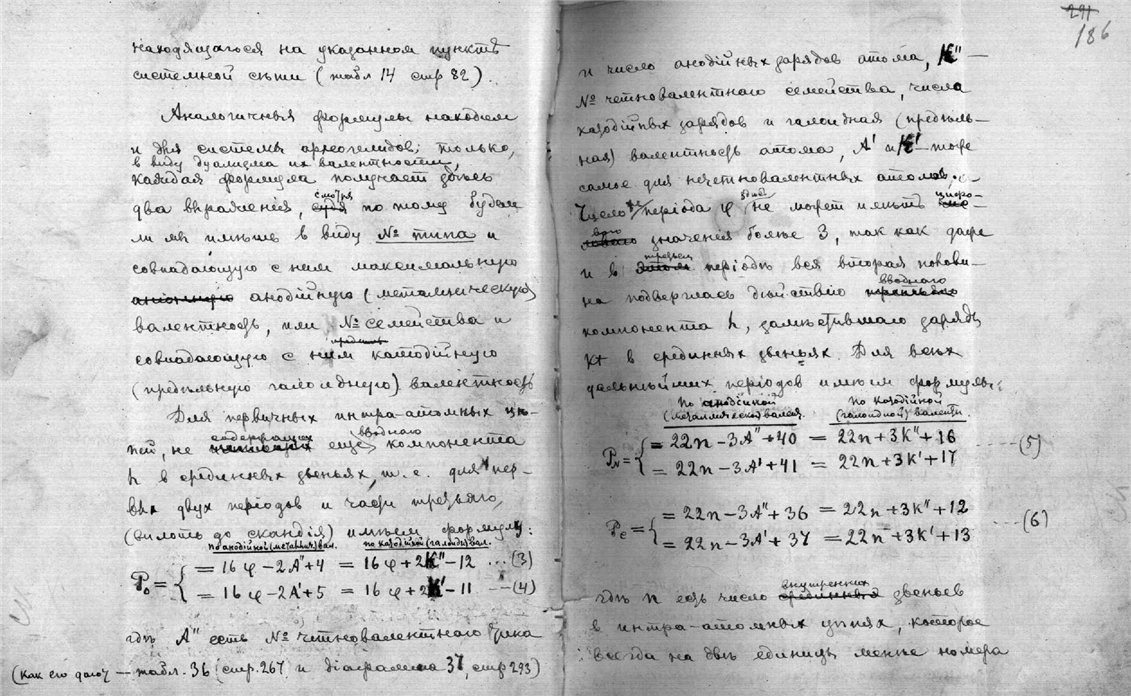 находящагося на указанномъ пунктѣ
системной сѣти (табл 14 стр 82).
Аналогичныя формулы находимъ
и для системы археогелидовъ; только,
въ виду дуализма ихъ валентности,
каждая формула получаетъ здѣсь
два выраженія, смотря по тому будемъ
ли мы имѣть въ виду № типа и
совпадающую съ нимъ максимальную
анодійную (металлическую)
валентность, или № семейства и
совпадающую съ нимъ катодійную
(предѣльную галоидную) валентность
Для первичныхъ интра-атомныхъ цѣ-
пей, не содержащихъ еще вводнаго компонента
h въ срединныхъ звеньяхъ, т. е. для пер-
выхъ двухъ періодовъ и части третьяго,
(вплоть до скандія) имѣемъ формулы:
по анодійной (металлич) вал. по катодійной (галоидн) вал.
P₀ = { = 16φ − 2A″ + 4 = 16φ + 2K″ − 12 ... (3)
= 16φ − 2A′ + 5 = 16φ + 2K′ − 11 ... (4)
гдѣ A″ есть № четновалентнаго типа
(какъ его даютъ — табл. 36 (стр. 267) и діаграмма 37, стр 293)
291
186
и число анодійныхъ зарядовъ атома, K″ —
№ четновалентнаго семейства, числа
катодійныхъ зарядовъ и галоидная (предѣль-
ная) валентность атома, A′ и K′ — тоже
самое для нечетновалентныхъ атомовъ.
Число періода φ здѣсь не можетъ имѣть цифро-
вого значенія болѣе 3, такъ какъ даже
и въ третьемъ періодѣ вся вторая полови-
на подверглась дѣйствію вводнаго
компонента h, замѣстившаго заряды
K+ въ срединныхъ звеньяхъ. Для всѣхъ
дальнѣйшихъ періодовъ имѣемъ формулы:
по анодійной (металлической) вален. по катодійной (галоидной) валентн.
Pν = { = 22n − 3A″ + 40 = 22n + 3K″ + 16 ---- (5)
= 22n − 3A′ + 41 = 22n + 3K′ + 17
Pc = { = 22n − 3A″ + 36 = 22n + 3K″ + 12 ---- (6)
= 22n − 3A′ + 37 = 22n + 3K′ + 13
гдѣ n есть число внутреннихъ звеньевъ
въ интра-атомныхъ цѣпяхъ, которое
всегда на двѣ единицы менѣе номера